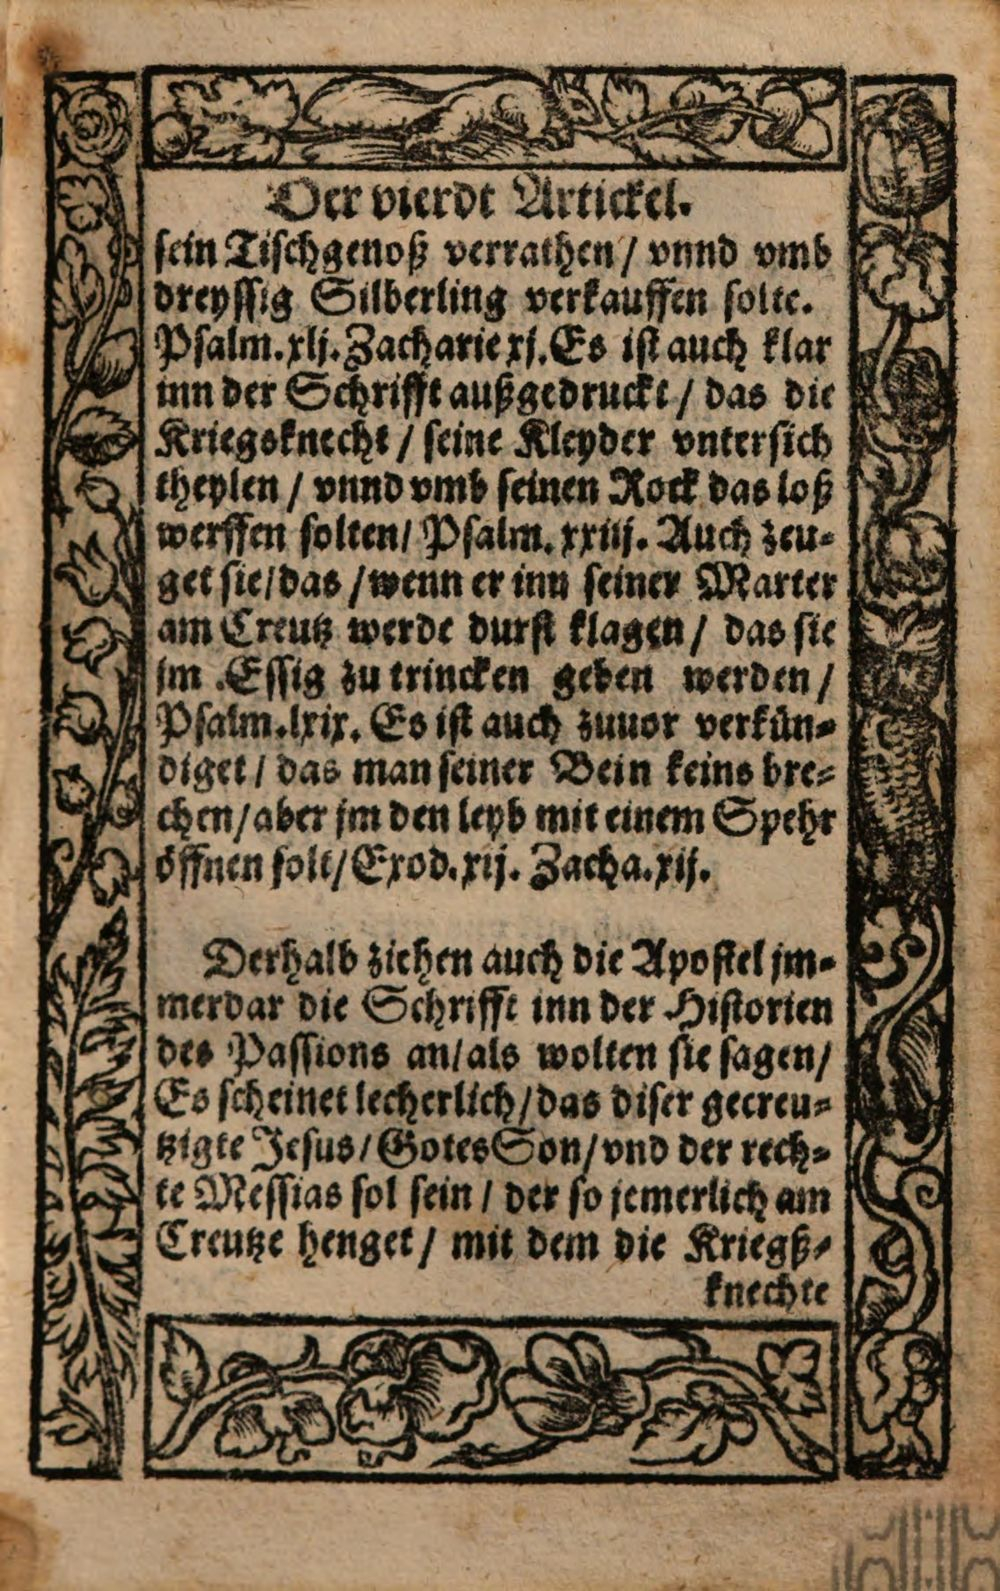 Der vierdt Artickel.
sein Tischgenoß verrathen / vnnd vmb
dreyssig Silberling verkauffen solte.
Psalm.xlj. Zacharie xj. Es ist auch klar
inn der Schrifft außgedruckt / das die
Kriegsknecht / seine Kleyder vntersich
theylen / vnnd vmb seinen Rock das loß
werffen solten / Psalm. xxiij. Auch zeu-
get sie / das / wenn er inn seiner Marter
am Creutz werde durst klagen / das sie
jm Essig zu trincken geben werden /
Psalm.lxix. Es ist auch zuuor verkün-
diget / das man seiner Bein keins bre-
chen / aber jm den leyb mit einem Spehr
öffnen solt / Exod.xij. Zacha.xij.
Derhalb ziehen auch die Apostel jm-
merdar die Schrifft inn der Historien
des Passions an / als wolten sie sagen /
Es scheinet lecherlich / das diser gecreu-
tzigte Jesus / Gotes Son / vnd der rech-
te Messias sol sein / der so jemerlich am
Creutze henget / mit dem die Kriegß-
knechte